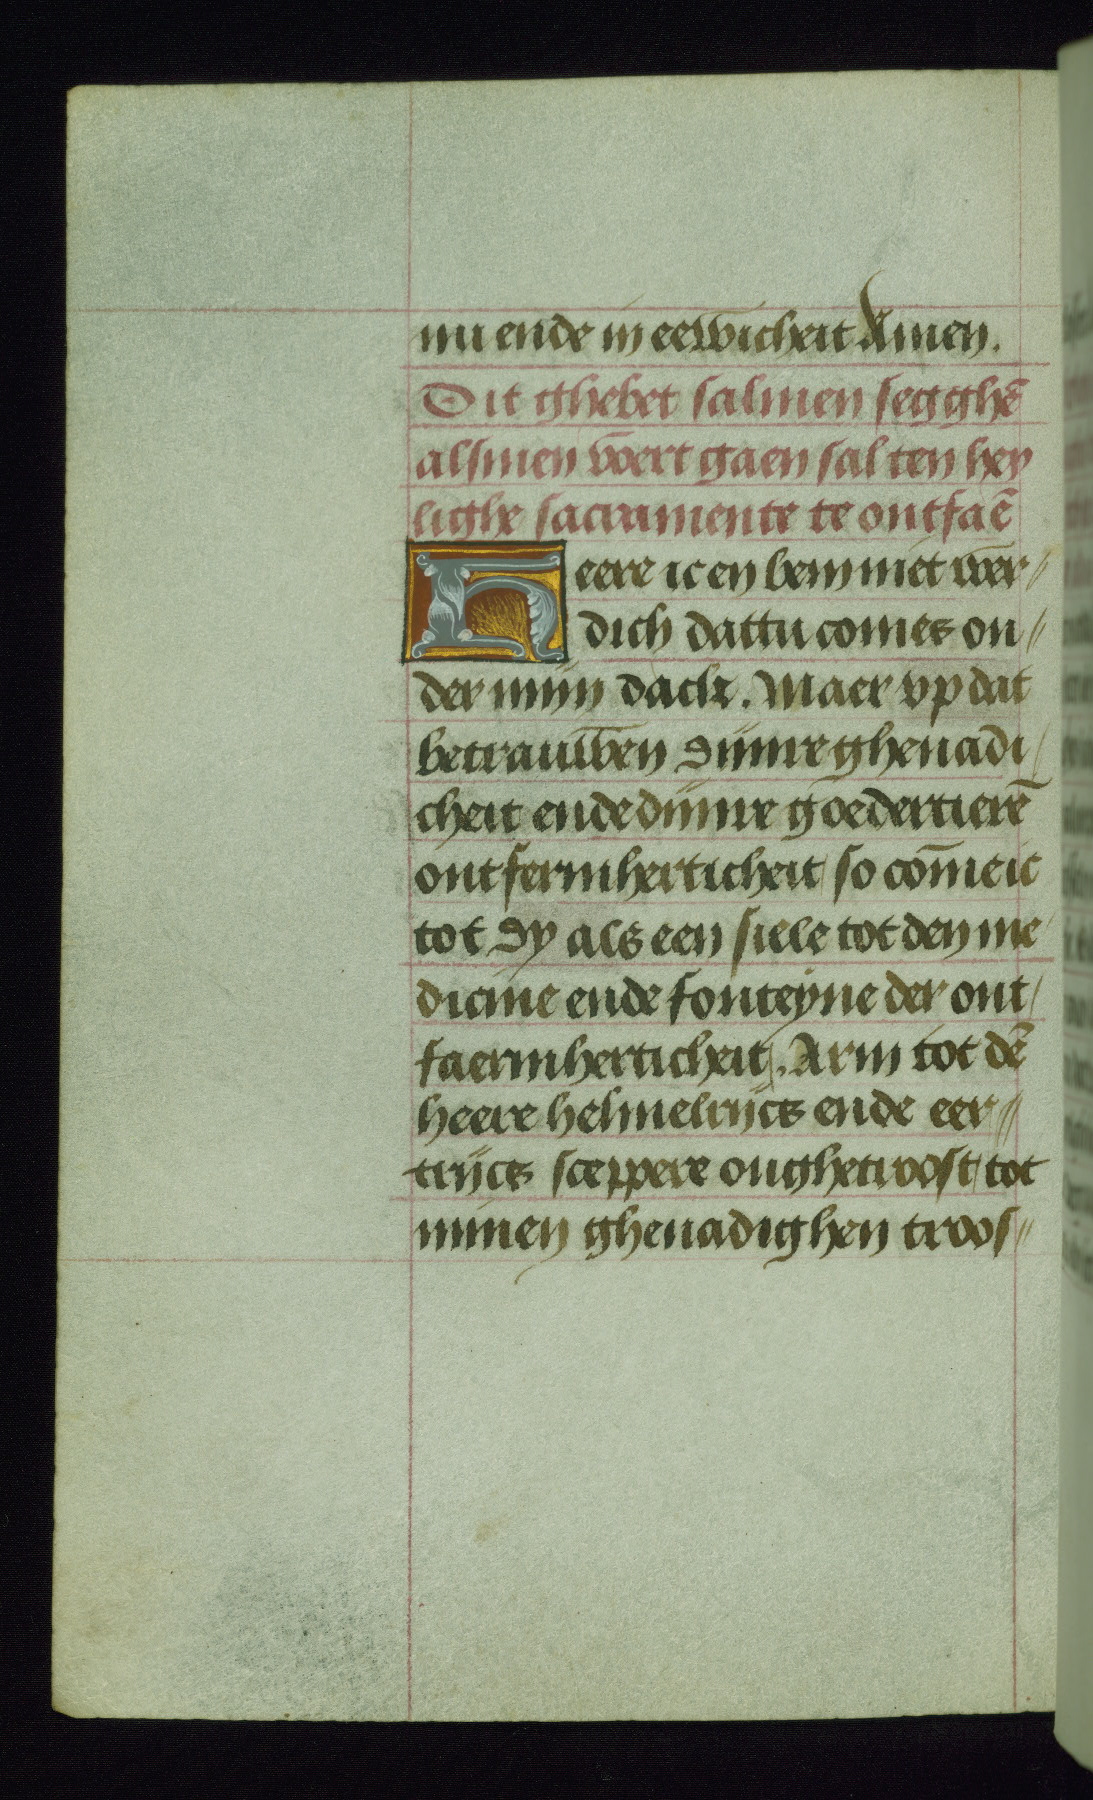 nu ende in eewicheit Amen.
Dit ghebet salmen segghē
alsmen voert gaen sal ten hey
lighe sacramente te ontfaē
Heere ic en bem niet weer//
dich dattu comes on//
der mijn dack. Maer vp dat
betrauwen dijnre ghenadi/
cheit ende dijnre goedertierē
ontfermherticheit/ so cōme ic
tot dy als een siele tot den me/
dicine ende fonteyne der ont/
faermherticheit/. Arm tot dē
heere helmelrijcs ende eer//
trijcs sceppere onghetroost/ tot
minen ghenadighen troos//